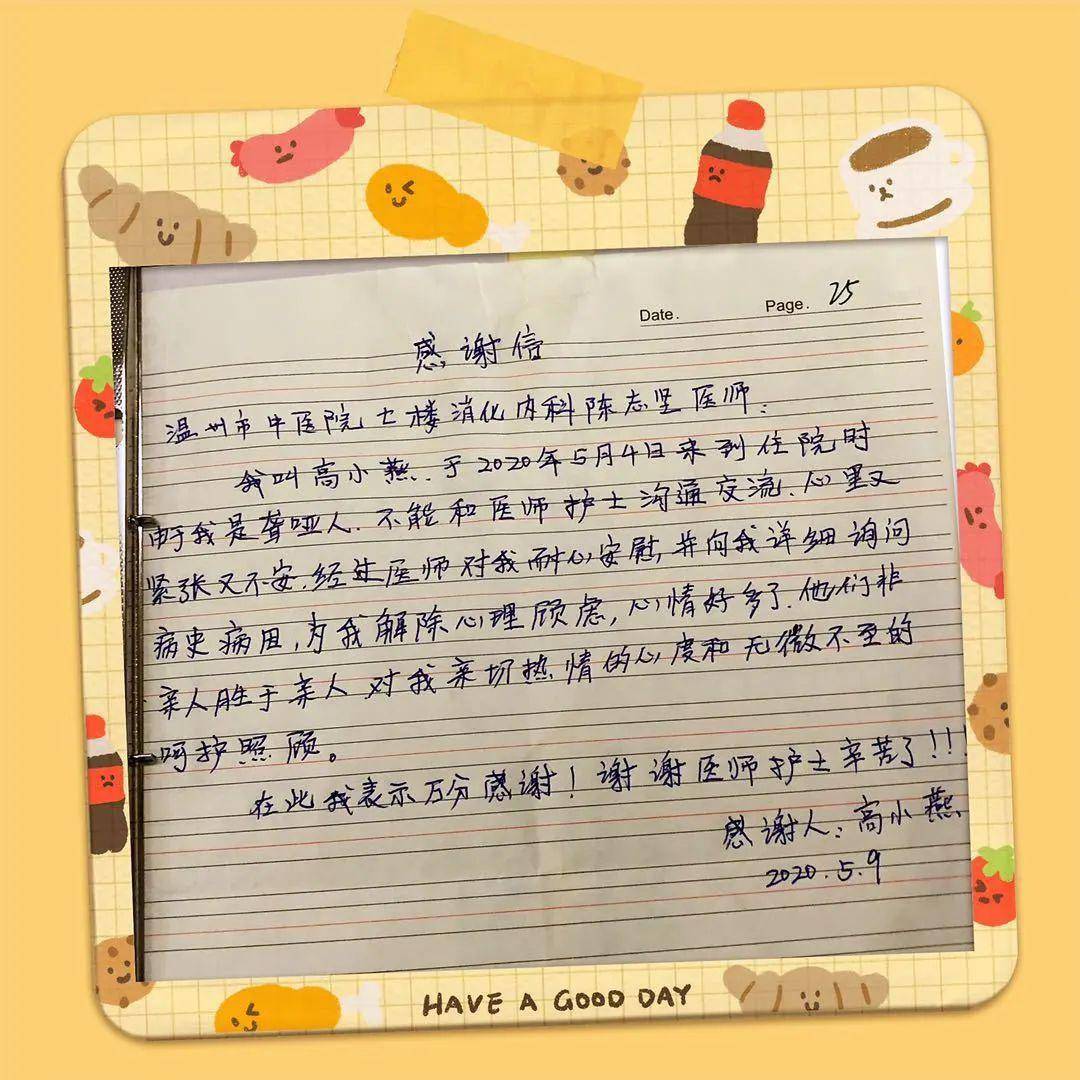 Date.
Page. 25
感谢信
温州市中医院七楼消化内科陈志坚医师：
我叫高小燕.于2020年5月4日来到住院时
由于我是聋哑人.不能和医师护士沟通交流.心里又
紧张又不安.经过医师对我耐心安慰,并向我详细询问
病史病因,为我解除心理顾虑,心情好多了.他们非
亲人胜于亲人对我亲切热情的心度和无微不至的
呵护照顾。
在此我表示万分感谢！谢谢医师护士辛苦了!!!
感谢人：高小燕
2020.5.9
HAVE A GOOD DAY